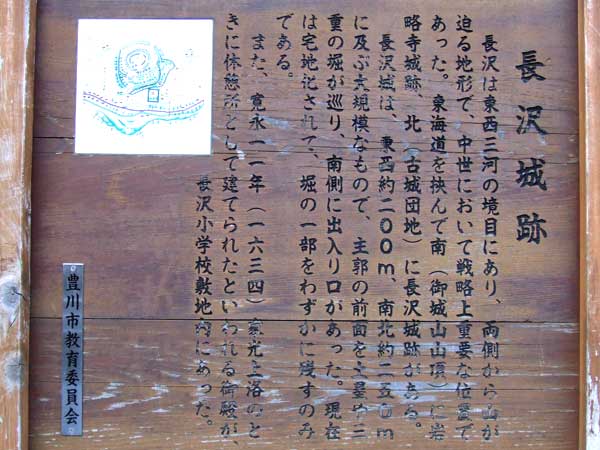 長沢城跡
長沢は東西三河の境目にあり、両側から山が
迫る地形で、中世において戦略上重要な位置で
あった。東海道を挟んで南（御城山山頂）に岩
略寺城跡、北（古城団地）に長沢城跡がある。
長沢城は、東西約二〇〇m、南北約二五〇m
に及ぶ大規模なもので、主郭の前面を土塁や三
重の堀が巡り、南側に出入り口があった。現在
は宅地化されて、堀の一部をわずかに残すのみ
である。
また、寛永一一年（一六三四）家光上洛のと
きに休憩所として建てられたといわれる御殿が、
長沢小学校敷地内にあった。
豊川市教育委員会